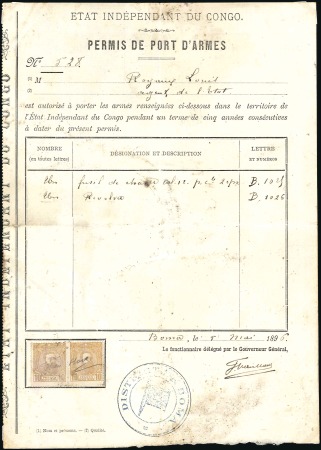 ETAT INDÉPENDANT DU CONGO.
PERMIS DE PORT D'ARMES
No 528
M Louis
agent de l'Etat
est autorisé à porter les armes renseignées ci-dessous dans le territoire de
l'État Indépendant du Congo pendant un terme de cinq années consécutives
à dater du présent permis.
NOMBRE
(en toutes lettres)
DÉSIGNATION ET DESCRIPTION
LETTRE
ET NUMÉROS
Un fusil de chasse B.
Un Revolver B. 1026
Boma, le 5 Mai 189
Le fonctionnaire délégué par le Gouverneur Général,
DISTRICT BOMA
(1) Nom et prénoms. — (2) Qualité.
ETAT INDÉPENDANT DU CONGO